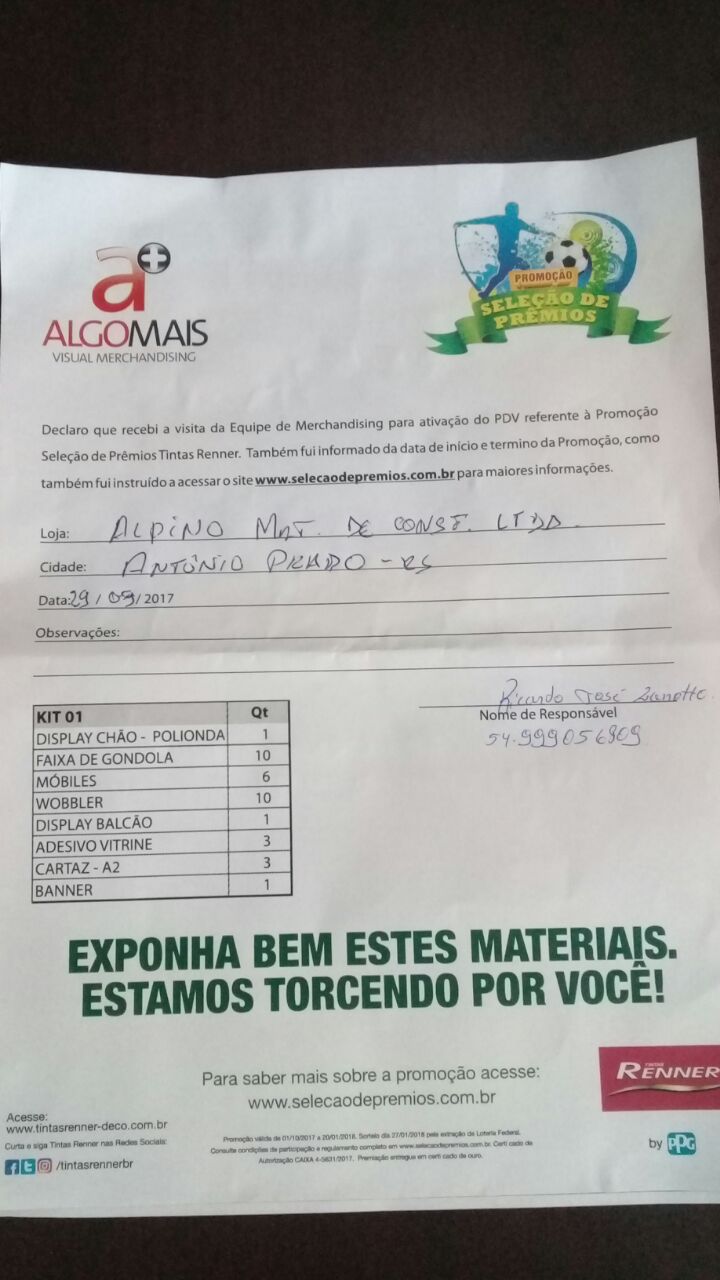 a+
ALGOMAIS
VISUAL MERCHANDISING
PROMOÇÃO
SELEÇÃO DE
PRÊMIOS
Declaro que recebi a visita da Equipe de Merchandising para ativação do PDV referente à Promoção
Seleção de Prêmios Tintas Renner. Também fui informado da data de início e termino da Promoção, como
também fui instruído a acessar o site www.selecaodepremios.com.br para maiores informações.
Loja: ALPINO MAT. DE CONST. LTDA.
Cidade: ANTÔNIO PRADO - RS
Data: 29 / 09 / 2017
Observações:
Ricardo José Zanotto
Nome de Responsável
54.999056909
KIT 01 Qt
DISPLAY CHÃO - POLIONDA 1
FAIXA DE GONDOLA 10
MÓBILES 6
WOBBLER 10
DISPLAY BALCÃO 1
ADESIVO VITRINE 3
CARTAZ - A2 3
BANNER 1
EXPONHA BEM ESTES MATERIAIS.
ESTAMOS TORCENDO POR VOCÊ!
Para saber mais sobre a promoção acesse:
www.selecaodepremios.com.br
TINTAS
RENNER
by PPG
Acesse:
www.tintasrenner-deco.com.br
Curta e siga Tintas Renner nas Redes Sociais:
/tintasrennerbr
Promoção válida de 01/10/2017 a 20/01/2018. Sorteio dia 27/01/2018 pela extração da Loteria Federal.
Consulte condições de participação e regulamento completo em www.selecaodepremios.com.br. Certificado de
Autorização CAIXA 4-5631/2017. Premiação entregue em certificado de ouro.